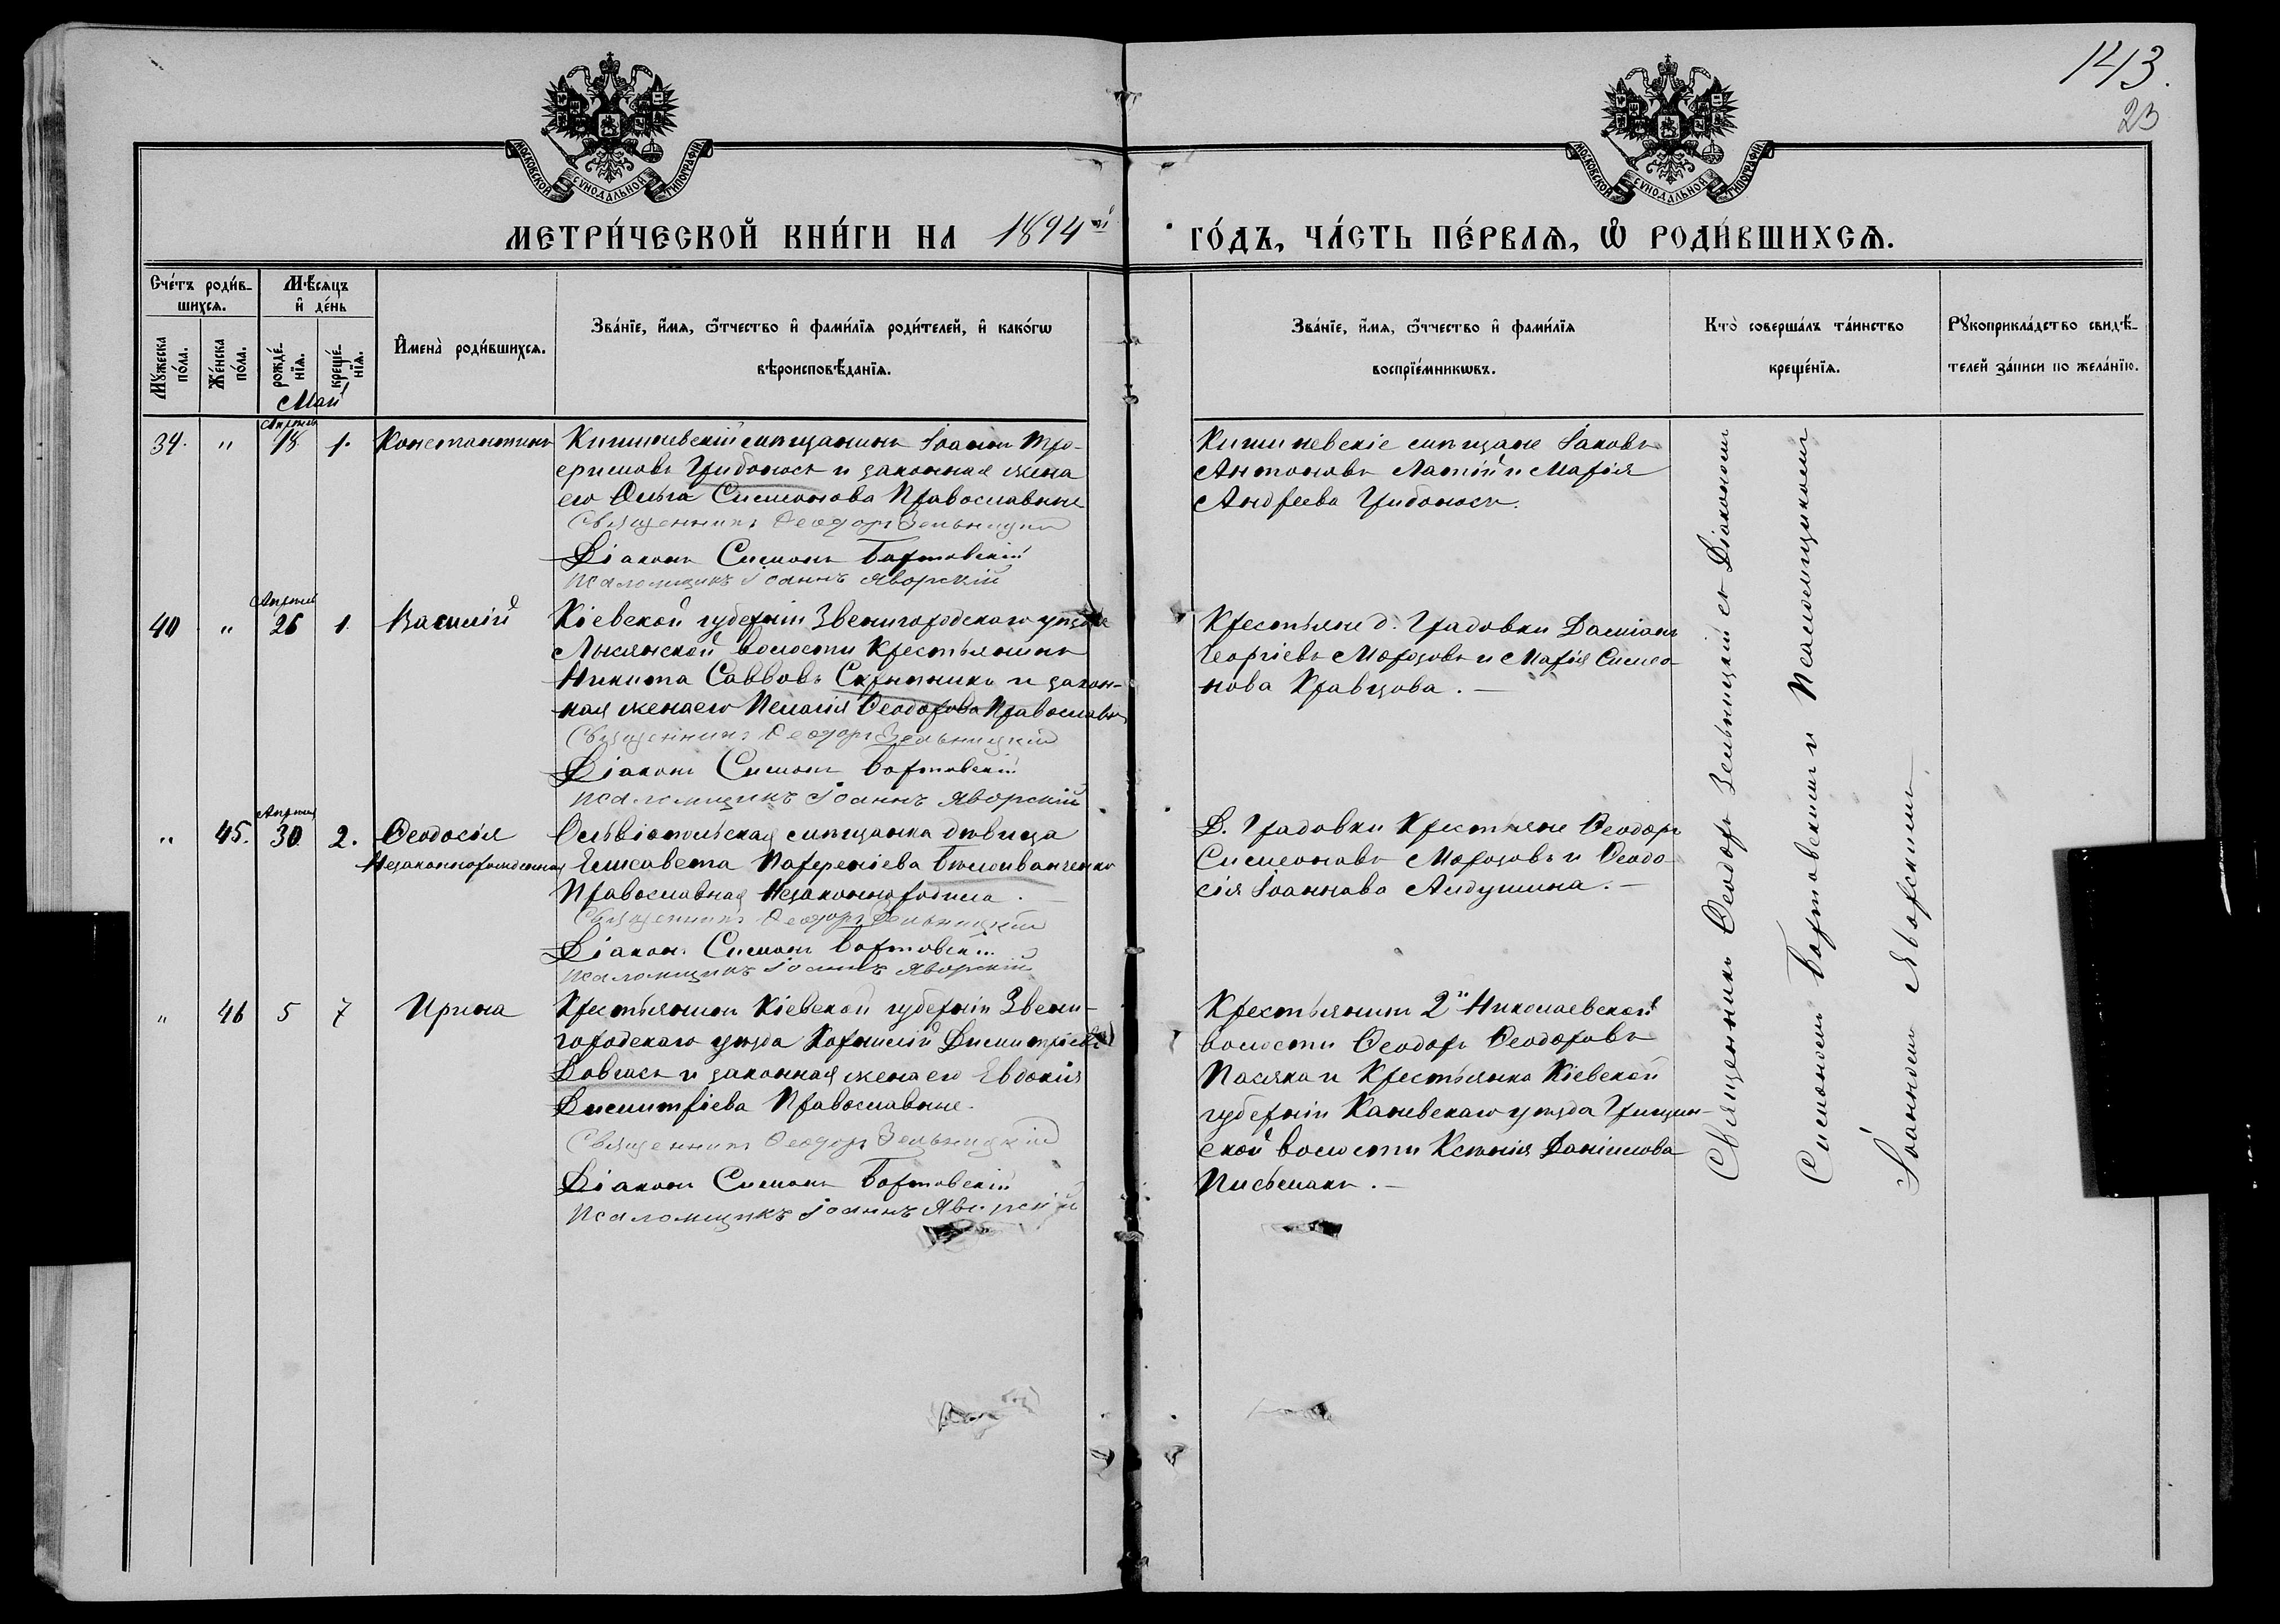 143.
23
МОСКОВСКОЙ СѴНОДАЛЬНОЙ ТИПОГРАФІИ
МОСКОВСКОЙ СѴНОДАЛЬНОЙ ТИПОГРАФІИ
МЕТРИ́ЧЕСКОЙ КНИ́ГИ НА 1894й ГО́ДЪ, ЧА́СТЬ ПЕ́РВАѦ, Ѡ҆ РОДИ́ВШИХСѦ.
Сче́тъ роди́в-
шихсѧ.
Мꙋ́жеска по́ла.
Же́нска по́ла.
Мѣ́сѧцъ
и҆ де́нь
рожде́-нїѧ.
креще́-нїѧ.
Май
И҆мена̀ роди́вшихсѧ.
Зва́нїе, и҆́мѧ, ѻ҆́тчество и҆ фами́лїѧ роди́телей, и҆ како́гѡ
вѣроисповѣ́данїѧ.
Зва́нїе, и҆́мѧ, ѻ҆́тчество и҆ фами́лїѧ
воспрїе́мникѡвъ.
Кто̀ соверша́лъ та́инство
креще́нїѧ.
Рꙋкоприкла́дство свидѣ́-
телей за́писи по жела́нїю.
39. " Апрѣль 18 1. Константинъ
Кишиневскій мѣщанинъ Іоаннъ Тро-
фимовъ Грибоносъ и законная жена
его Ольга Симеонова Православные
Священникъ Ѳеодоръ Зельницкій
Діаконъ Симеонъ Бортовскій
Псаломщикъ Іоаннъ Яворскій
Кишиневскіе мѣщане Іаковъ
Антоновъ Латій и Марія
Андреева Грибоносъ.
40 " Апрѣль 26 1 Василій
Кіевской губерніи Звенигородскаго уѣзда
Лысянской волости Крестьянинъ
Никита Саввовъ Скрыпникъ и закон-
ная жена его Пелагія Ѳеодорова Православн
Священникъ Ѳеодоръ Зельницкій
Діаконъ Симеонъ Бортовскій
Псаломщикъ Іоаннъ Яворскій
Крестьяне д. Градовки Даміанъ
Георгіевъ Морозовъ и Марія Симео-
нова Кравцова. —
" 45. Апрѣля 30 2. Ѳеодосія
Незаконнорожденная
Ольвіопольская мѣщанка дѣвица
Елисавета Парѳеніева
Православная Незаконно родила.
Священникъ Ѳеодоръ Зельницкій
Діаконъ Симеонъ Бортовскій
Псаломщикъ Іоаннъ Яворскій
Д. Градовки Крестьяне Ѳеодоръ
Симеоновъ Морозовъ и Ѳеодо-
сія Іоаннова —
" 46 5 7 Ирина
Крестьянинъ Кіевской губерніи Звени-
городскаго уѣзда Корнилій Димитріевъ
Довгасъ и законная жена его Евдокія
Димитріева Православные.
Священникъ Ѳеодоръ Зельницкій
Діаконъ Симеонъ Бортовскій
Псаломщикъ Іоаннъ Яворскій
Крестьянинъ 2й Николаевской
волости Ѳеодоръ Ѳеодоровъ
Пасяка и Крестьянка Кіевской
губерніи Каневскаго уѣзда
ской волости Ксенія Даніилова
Письмакъ. —
Священникъ Ѳеодоръ Зельницкій съ Діакономъ
Симеономъ Бортовскимъ и Псаломщикомъ
Іоанномъ Яворскимъ